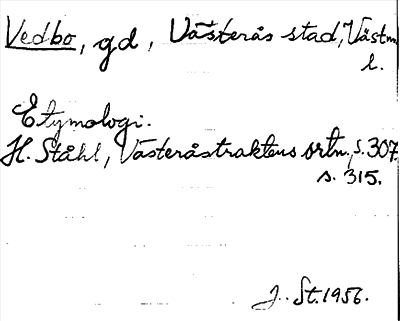 Vedbo, gd, Västerås stad, Västm.
l.
Etymologi.
H. Ståhl, Västeråstraktens ortn., s. 307.
s. 315.
J. St. 1956.